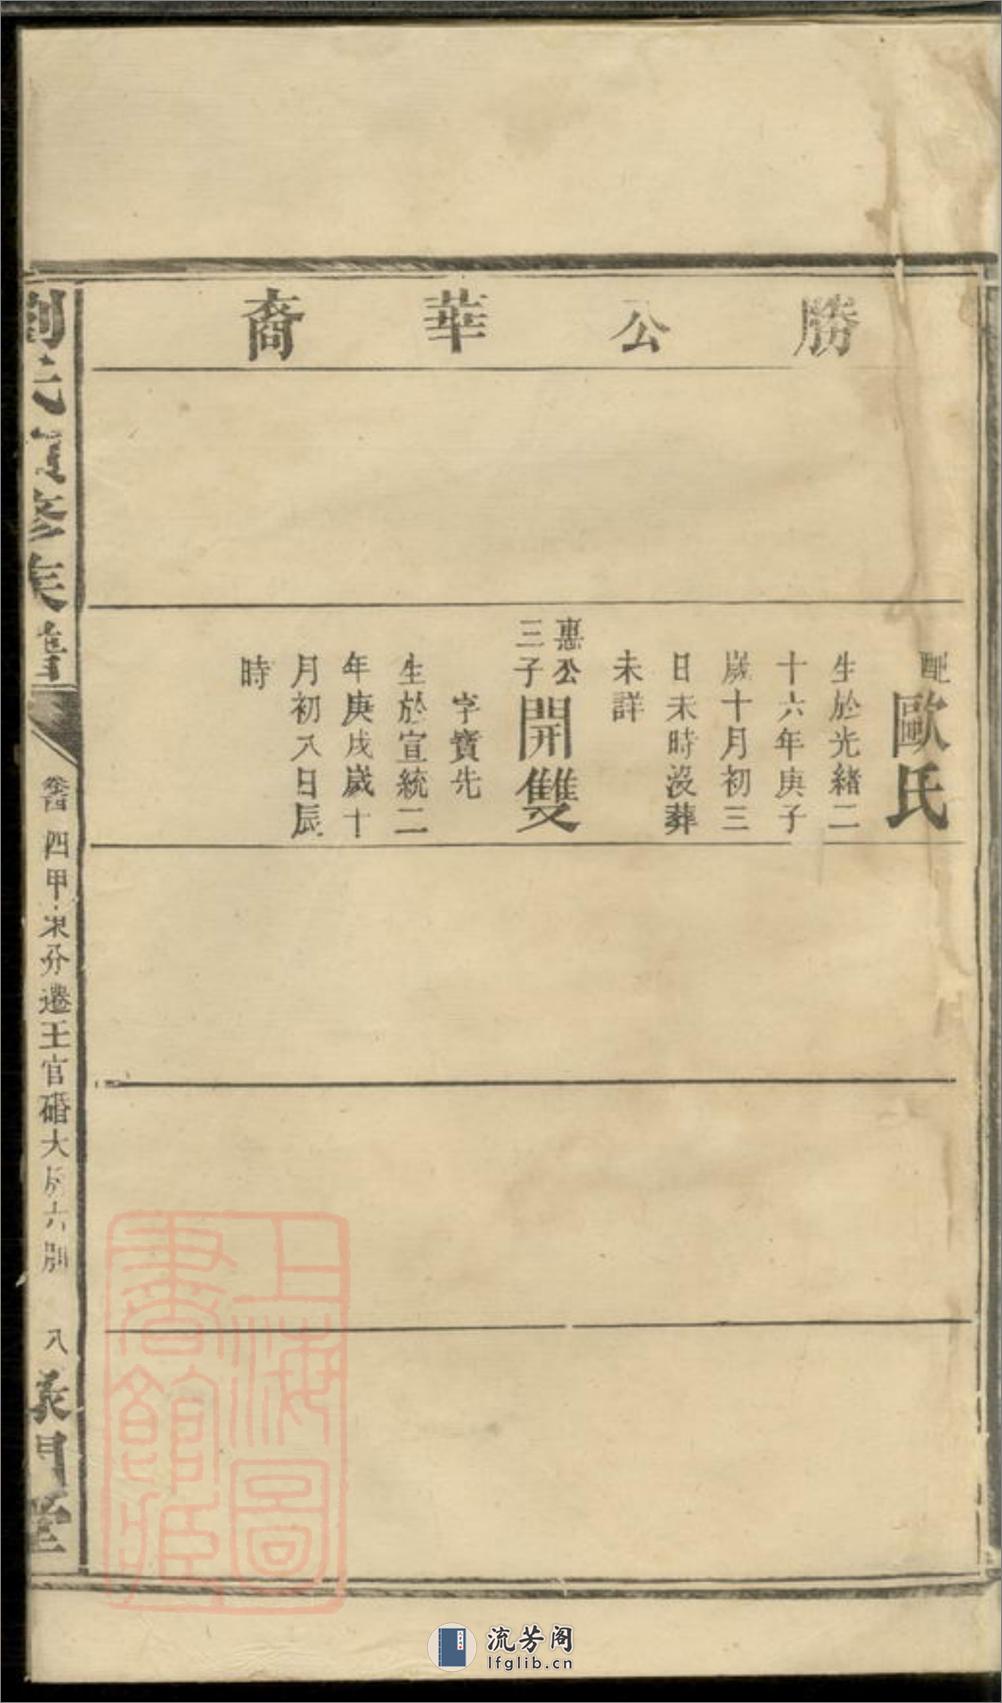 勝公華裔
配
歐氏
生於光緒二
十六年庚子
歲十月初三
日未時沒葬
未詳
惠公
三子
開雙
字寶先
生於宣統二
年庚戌歲十
月初八日辰
時
劉氏續修族譜
卷四
四甲宋分遷王官碈大房六別
八
義門堂
上海圖
書館藏
流芳阁
lfglib.cn